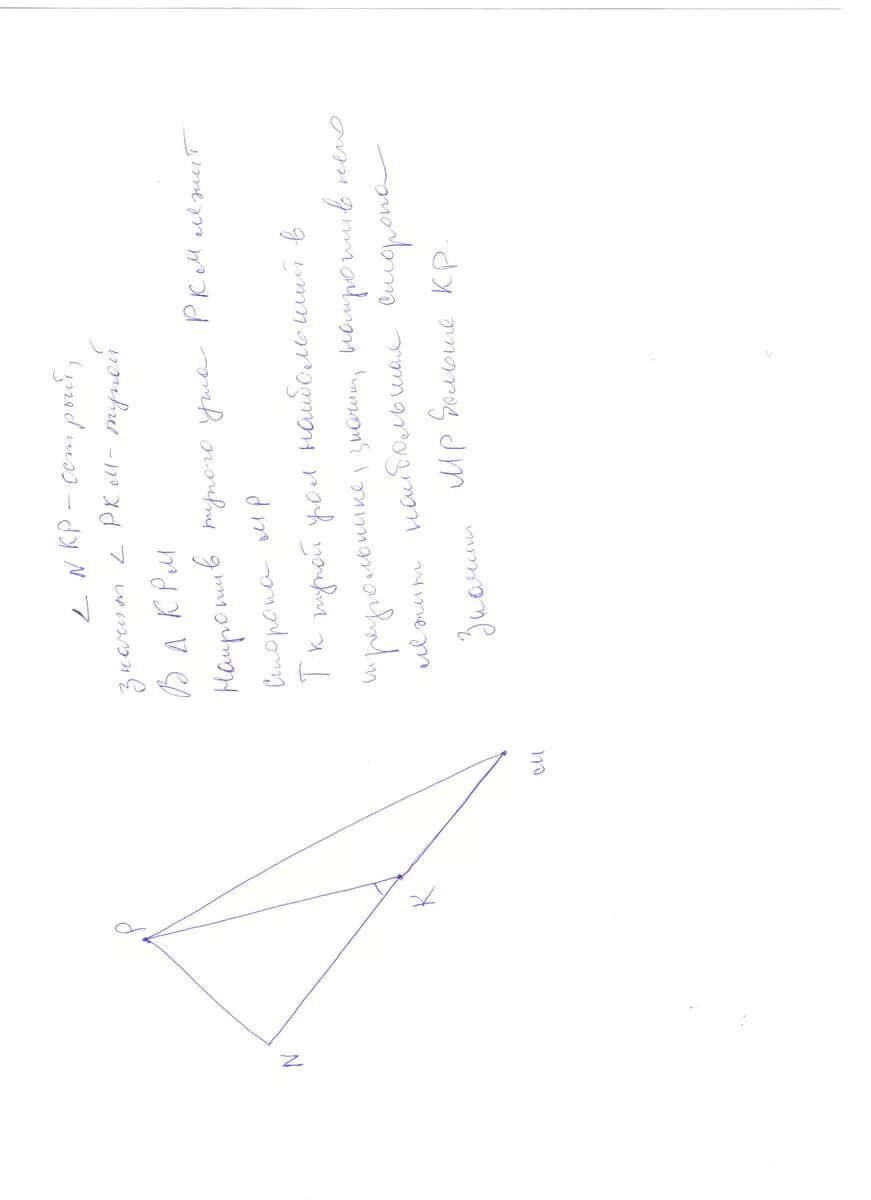 ∠ NKP - острый,
значит ∠ PKM - тупой
В Δ KPM
Напротив тупого угла PKM лежит
сторона MP
Т к тупой угол наибольший в
треугольнике, значит, напротив него
лежит наибольшая сторона
Значит MP больше KP.
P
N
K
M